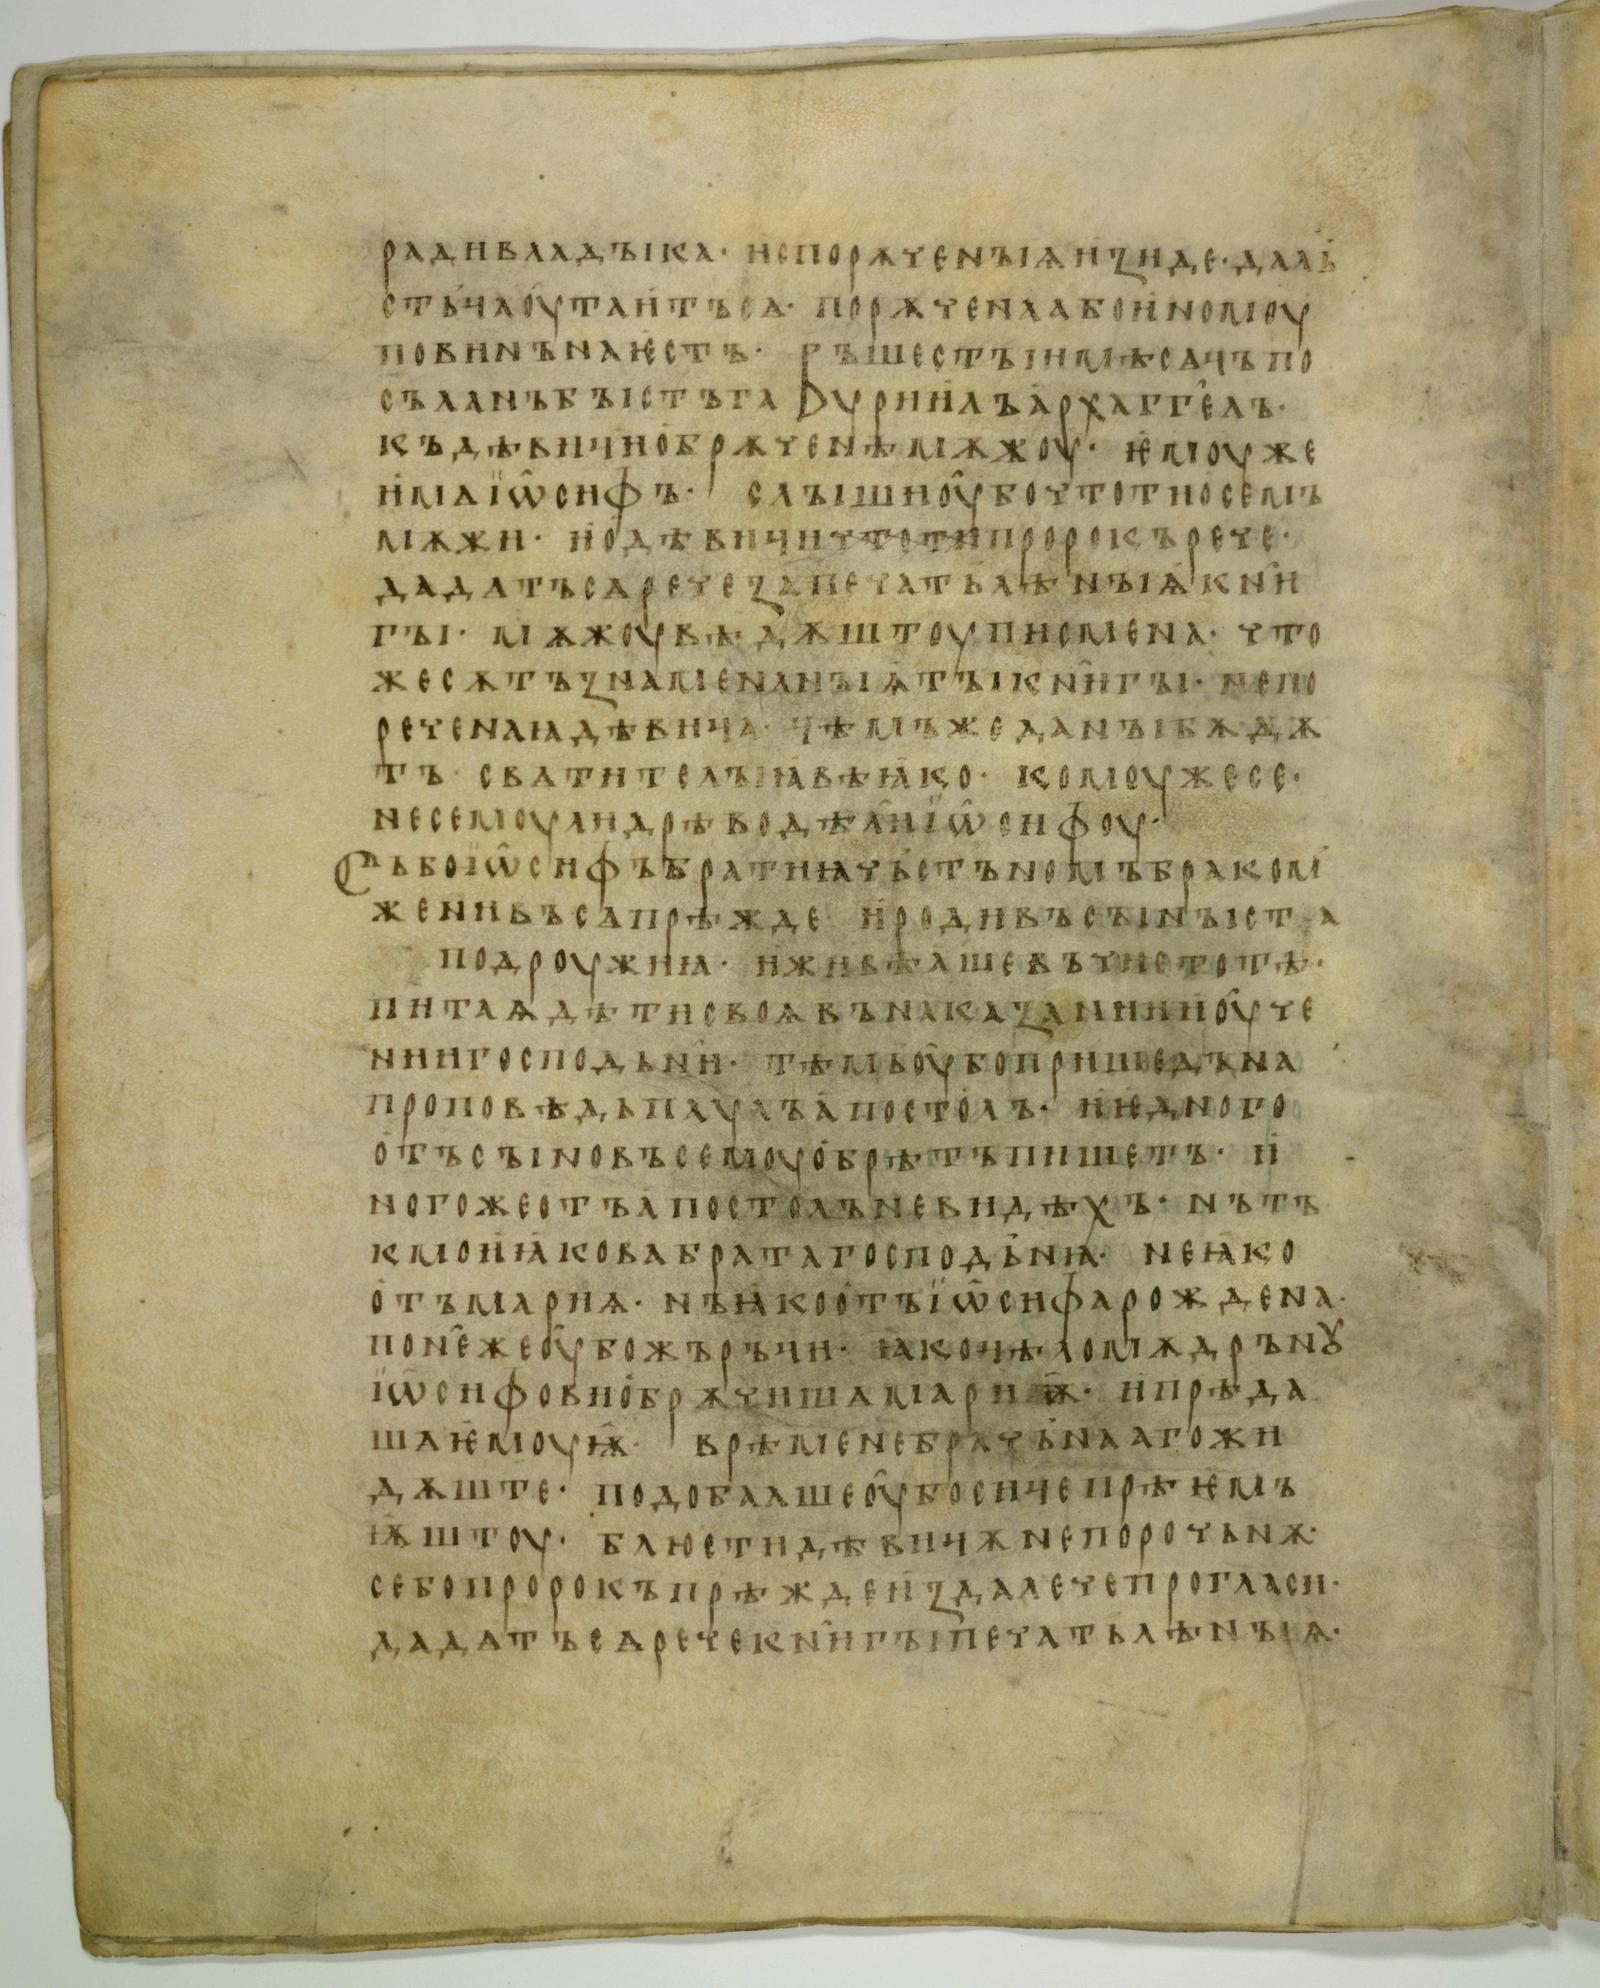 ради владꙑка· непорѫченꙑѧ изиде· далъ
стьца ѹтаитъ сѧ· порѫченаа бо иномоу
повинъна ѥстъ· Въ шестꙑи мѣсѧцъ по
съланъ бꙑстъ гаѵриилъ архаггелъ·
къ дѣвици обрѫченѣ мѫжоу· ѥмоу же
имѧ їѡсифъ· слꙑши оубо чтоти о семь
мѫжи· и о дѣвици чтоти пророкъ рече·
дадѧтъ сѧ рече запечатьлѣнꙑѧ кни
гꙑ· мѫжоу вѣдѫштоу писмена· что
же сѫтъ знаменанꙑѧ тꙑ книгꙑ· непо
реченаꙗ дѣвица· цѣмь же данꙑ бѫдѫ
тъ· свѧтительи ꙗвѣ ꙗко· комоу же се·
не семоу ли дрѣводѣли їѡсифоу·
Сь бо їѡсифъ братиꙗ чьстьномь бракомь
женивъ сѧ прѣжде и родивъ сꙑнꙑ ста
подроужиꙗ· и живѣаше въ чистотѣ·
питаѧ дѣти своѧ въ наказании и оуче
нии господьни· тѣмь оубо пришедъ на
проповѣдь паѵлъ апостолъ· и ѥдного
отъ сꙑновъ семоу обрѣтъ пишетъ· и
ного же отъ апостолъ не видѣхъ· нъ тъ
кмо иꙗкова брата господьнꙗ· не ꙗко
отъ мариѧ· нъ ꙗко отъ їѡсифа рождена·
понеже оубо жьрьци· ꙗко цѣломѫдрънꙋ
їѡсифови обрѫчишѧ мариѭ· и прѣда
шѧ ѥмоу ѭ· врѣмене брачьнааго жи
дѫште· подобааше оубо сице прѣѥмъ
ѭштоу· блюсти дѣвицѫ непорочьнѫ·
се бо пророкъ прѣжде издалече прогласи·
дадѧтъ сѧ рече книгꙑ печатьлѣнꙑѧ·